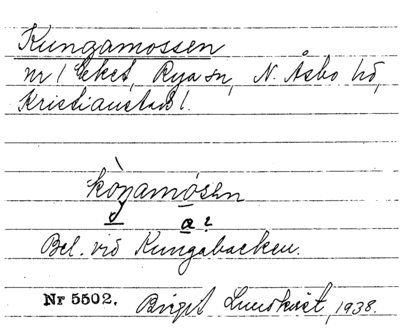 Kungamossen
nr 1 Eket, Rya sn, N. Åsbo hd,
Kristianstads l.
kòŋamósen
a?
Bel. vid Kungabacken.
Nr 5502. Birgit Lundkvist, 1938.